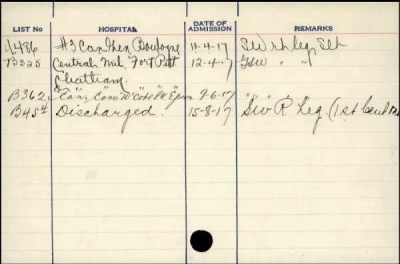 LIST No HOSPITAL DATE OF ADMISSION REMARKS
1486 #3 Can Gen Boulogne 11-4-17 SW rt leg Sth
B325 Central Mil Fort Pitt 12-4-17 GSW " "
Chatham.
B362 Can. Con. Wcote Pk Epsom 9-6-17 " " "
B454 Discharged. 15-8-17 SW R Leg. (1st Cent